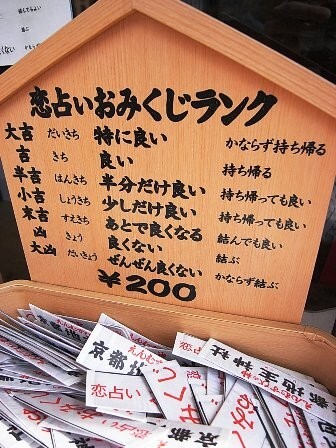 恋占いおみくじランク
大吉 だいきち 特に良い かならず持ち帰る
吉 きち 良い 持ち帰る
半吉 はんきち 半分だけ良い 持ち帰っても良い
小吉 しょうきち 少しだけ良い 持ち帰っても良い
末吉 すえきち あとで良くなる 結んでも良い
凶 きょう 良くない 結ぶ
大凶 だいきょう ぜんぜん良くない かならず結ぶ
¥200
えんむすび
京都地
恋占い
京都
えんむすび
地主神社